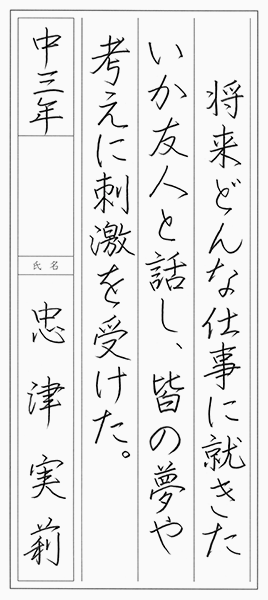 将来どんな仕事に就きた
いか友人と話し、皆の夢や
考えに刺激を受けた。
中三年
氏名
忠津実莉